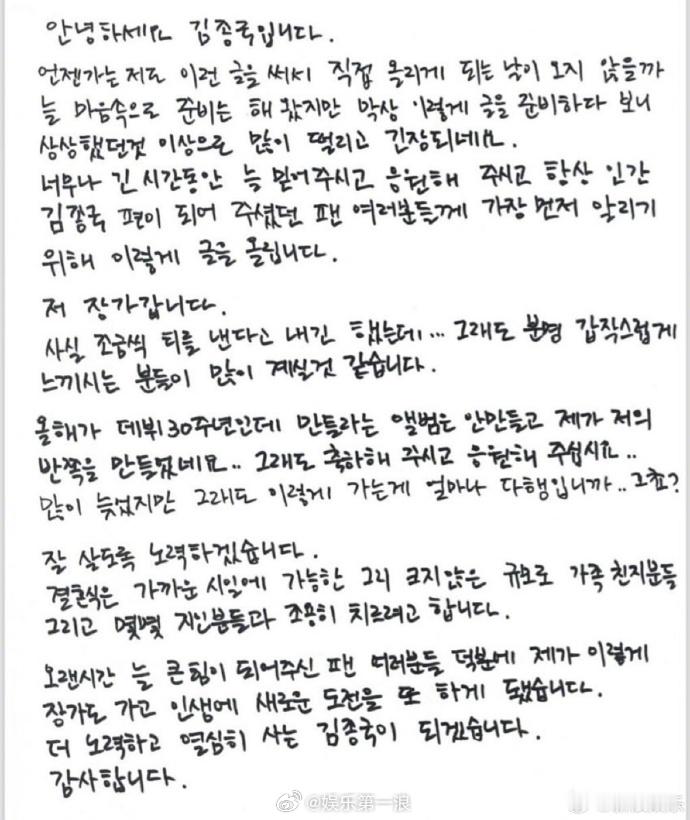 안녕하세요 김종국입니다.
언젠가는 저도 이런 글을 써서 직접 올리게 되는 날이 오지 않을까
늘 마음속으로 준비는 해 왔지만 막상 이렇게 글을 준비하다 보니
상상했던것 이상으로 많이 떨리고 긴장되네요.
너무나 긴 시간동안 늘 믿어주시고 응원해 주시고 항상 인간
김종국 편이 되어 주셨던 팬 여러분들께 가장 먼저 알리기
위해 이렇게 글을 올립니다.
저 장가갑니다.
사실 조금씩 티를 낸다고 내긴 했는데... 그래도 분명 갑작스럽게
느끼시는 분들이 많이 계실것 같습니다.
올해가 데뷔30주년인데 만들라는 앨범은 안만들고 제가 저의
반쪽을 만들었네요.. 그래도 축하해 주시고 응원해 주십시요..
많이 늦었지만 그래도 이렇게 가는게 얼마나 다행입니까.. 그쵸?
잘 살도록 노력하겠습니다.
결혼식은 가까운 시일에 가능한 그리 크지않은 규모로 가족 친지분들
그리고 몇몇 지인분들과 조용히 치르려고 합니다.
오랜시간 늘 큰힘이 되어주신 팬 여러분들 덕분에 제가 이렇게
장가도 가고 인생에 새로운 도전을 또 하게 됐습니다.
더 노력하고 열심히 사는 김종국이 되겠습니다.
감사합니다.
@娱乐第一浪